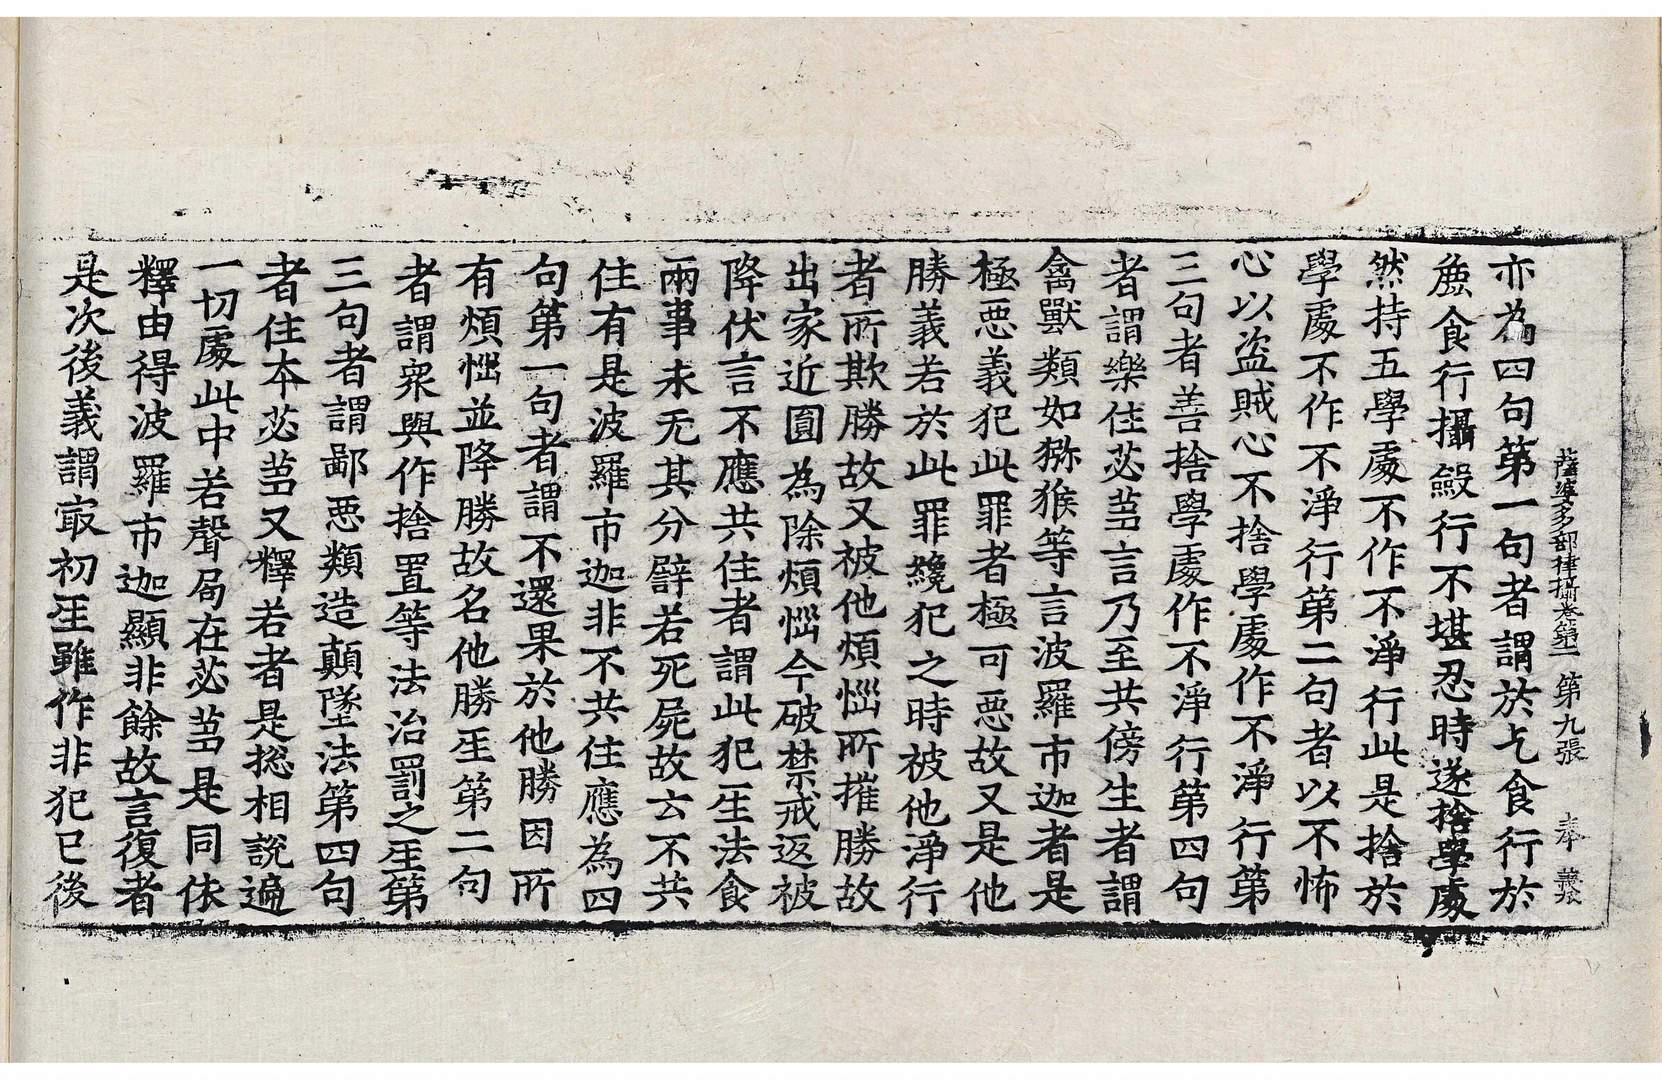 薩婆多部律攝卷第二 第九張 奉 義張
亦為四句第一句者謂於乞食行於
麁食行攝毀行不堪忍時遂捨學處
然持五學處不作不淨行此是捨於
學處不作不淨行第二句者以不怖
心以盜賊心不捨學處作不淨行第
三句者善捨學處作不淨行第四句
者謂樂住苾芻言乃至共傍生者謂
禽獸類如猕猴等言波羅市迦者是
極惡義犯此罪者極可惡故又是他
勝義若於此罪纔犯之時被他淨行
者所欺勝故又被他煩惱所摧勝故
出家近圓為除煩惱今破禁戒返被
降伏言不應共住者謂此犯人法食
兩事未无其分譬若死屍故云不共
住有是波羅市迦非不共住應為四
句第一句者謂不還果於他勝因所
有煩惱並降勝故名他勝人第二句
者謂眾與作捨置等法治罰之人第
三句者謂鄙惡類造顛墜法第四句
者住本苾芻又釋若者是揔相說遍
一切處此中若聲局在苾芻是同依
釋由得波羅市迦顯非餘故言復者
是次後義謂㝡初人雖作非犯已後